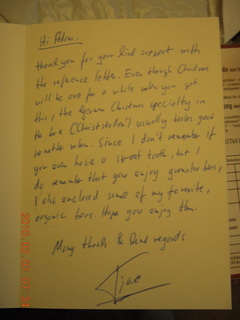 Hi
thank you for your kind support with
the reference letter. Even though Christmas
will be over for a while when you get
this, the German Christmas specialty in
the box (Christstollen) usually tastes good
no matter when. Since I don't remember if
you even have a sweet tooth, but I
do remember that you enjoy granola bars,
I also enclosed some of my favorite,
organic bars. Hope you enjoy
Many thanks & kind regards